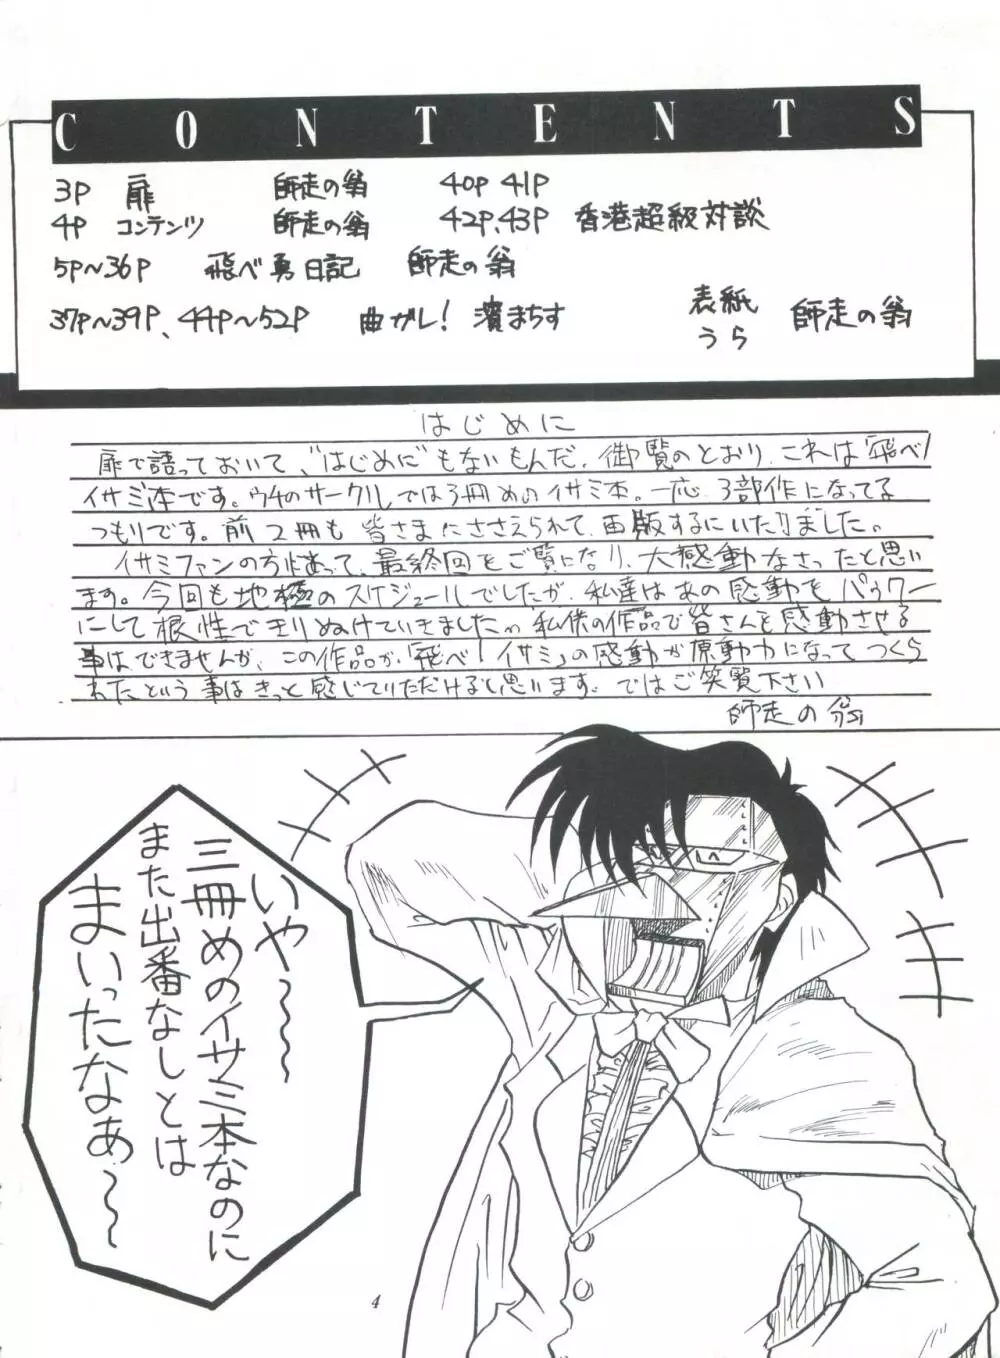 CONTENTS
3P 扉 師走の翁
4P コンテンツ 師走の翁
5P〜36P 飛べ勇日記 師走の翁
37P〜39P、44P〜52P 曲がレ! 濱まちす
40P 41P
42P、43P 香港超級対談
表紙
うら 師走の翁
はじめに
扉で語っておいて、"はじめに"もないもんだ。御覧のとおり、これは「飛べ!
イサミ」本です。ウチのサークルでは3冊めのイサミ本。一応、3部作になってる
つもりです。前2冊も皆さまにささえられて、再販するにいたりました。
イサミファンの方は、最終回をご覧になり、大感動なさったと思い
ます。今回も地極のスケジュールでしたが、私達はあの感動をパゥワー
にして根性できりぬけていきました。私供の作品で皆さんを感動させる
事はできませんが、この作品が「飛べ!イサミ」の感動が原動力になってつくら
れたという事はきっと感じていただけると思います。ではご笑覧下さい
師走の翁
いや〜〜
三冊めのイサミ本なのに
また出番なしとは
まいったなあ〜〜
4